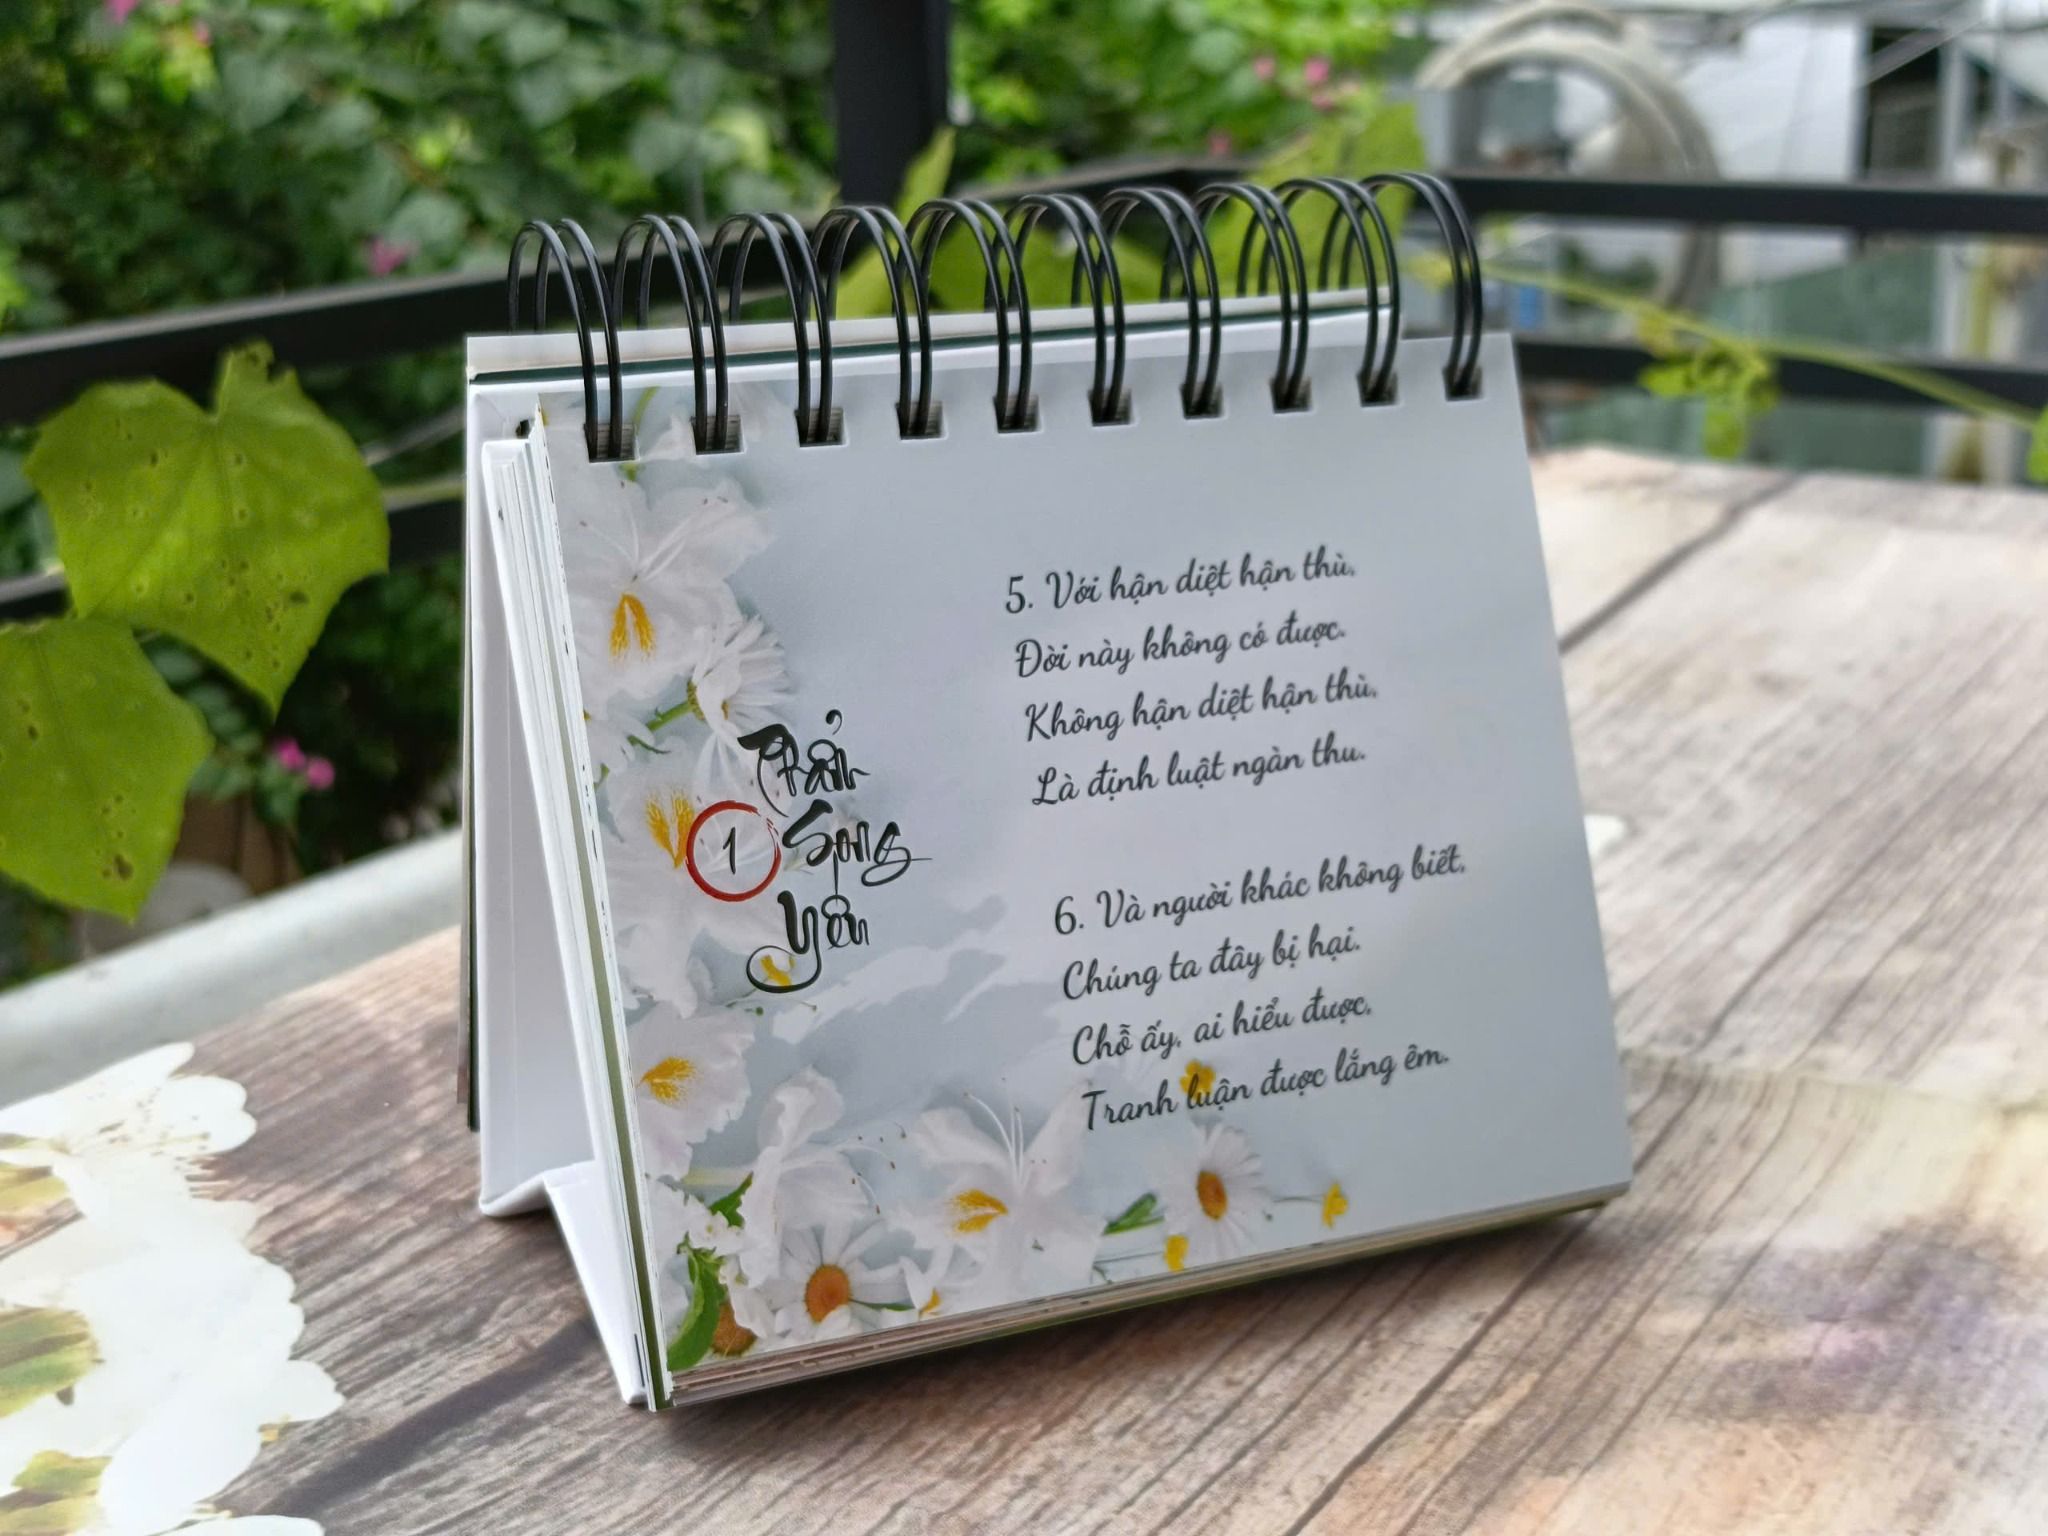 Phẩm
1
Song
Yếu
5. Với hận diệt hận thù,
Đời này không có được.
Không hận diệt hận thù,
Là định luật ngàn thu.
6. Và người khác không biết,
Chúng ta đây bị hại.
Chỗ ấy, ai hiểu được,
Tranh luận được lắng êm.